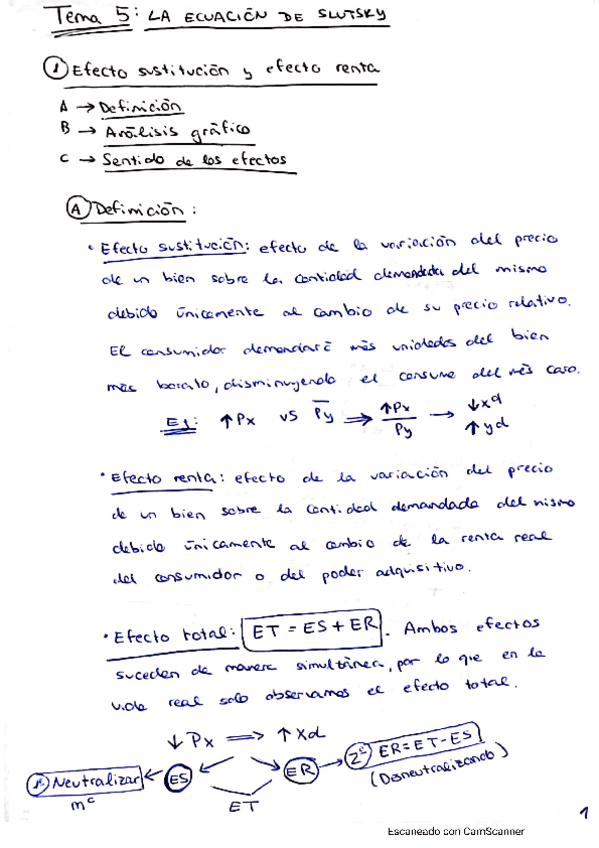 Tema 5: LA ECUACIÓN DE SLUTSKY
① Efecto sustitución y efecto renta
A → Definición
B → Análisis gráfico
C → Sentido de los efectos
Ⓐ Definición:
• Efecto sustitución: efecto de la variación del precio
de un bien sobre la cantidad demandada del mismo
debido únicamente al cambio de su precio relativo.
El consumidor demandará más unidades del bien
más barato, disminuyendo el consumo del más caro.
Ej: ↑Px vs P̄y ⇒ ↑Px/Py → ↓xd ↑yd
• Efecto renta: efecto de la variación del precio
de un bien sobre la cantidad demandada del mismo
debido únicamente al cambio de la renta real
del consumidor o del poder adquisitivo.
• Efecto total: ET = ES + ER. Ambos efectos
suceden de manera simultánea, por lo que en la
vida real solo observamos el efecto total.
↓Px ⇒ ↑Xd
1º Neutralizar ← ES ER → 2º ER = ET - ES
mc ET (Desneutralizando)
1
Escaneado con CamScanner